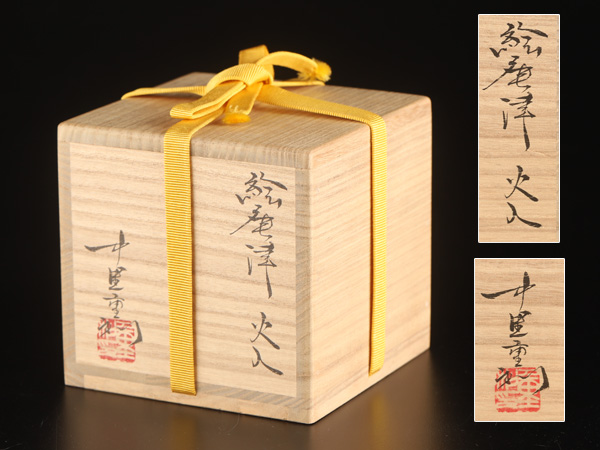 絵唐津 火入
中里重利
絵唐津 火入
中里重利